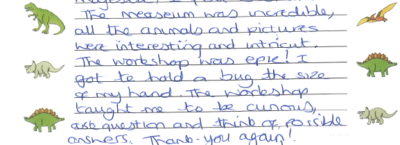 The measeum was incredible,
all the animals and pictures
were interesting and intricut.
The workshop was epic! I
got to hold a bug the size
of my hand. The workshop
taught me to be curious,
ask question and think of possible
answers. Thank-you again!